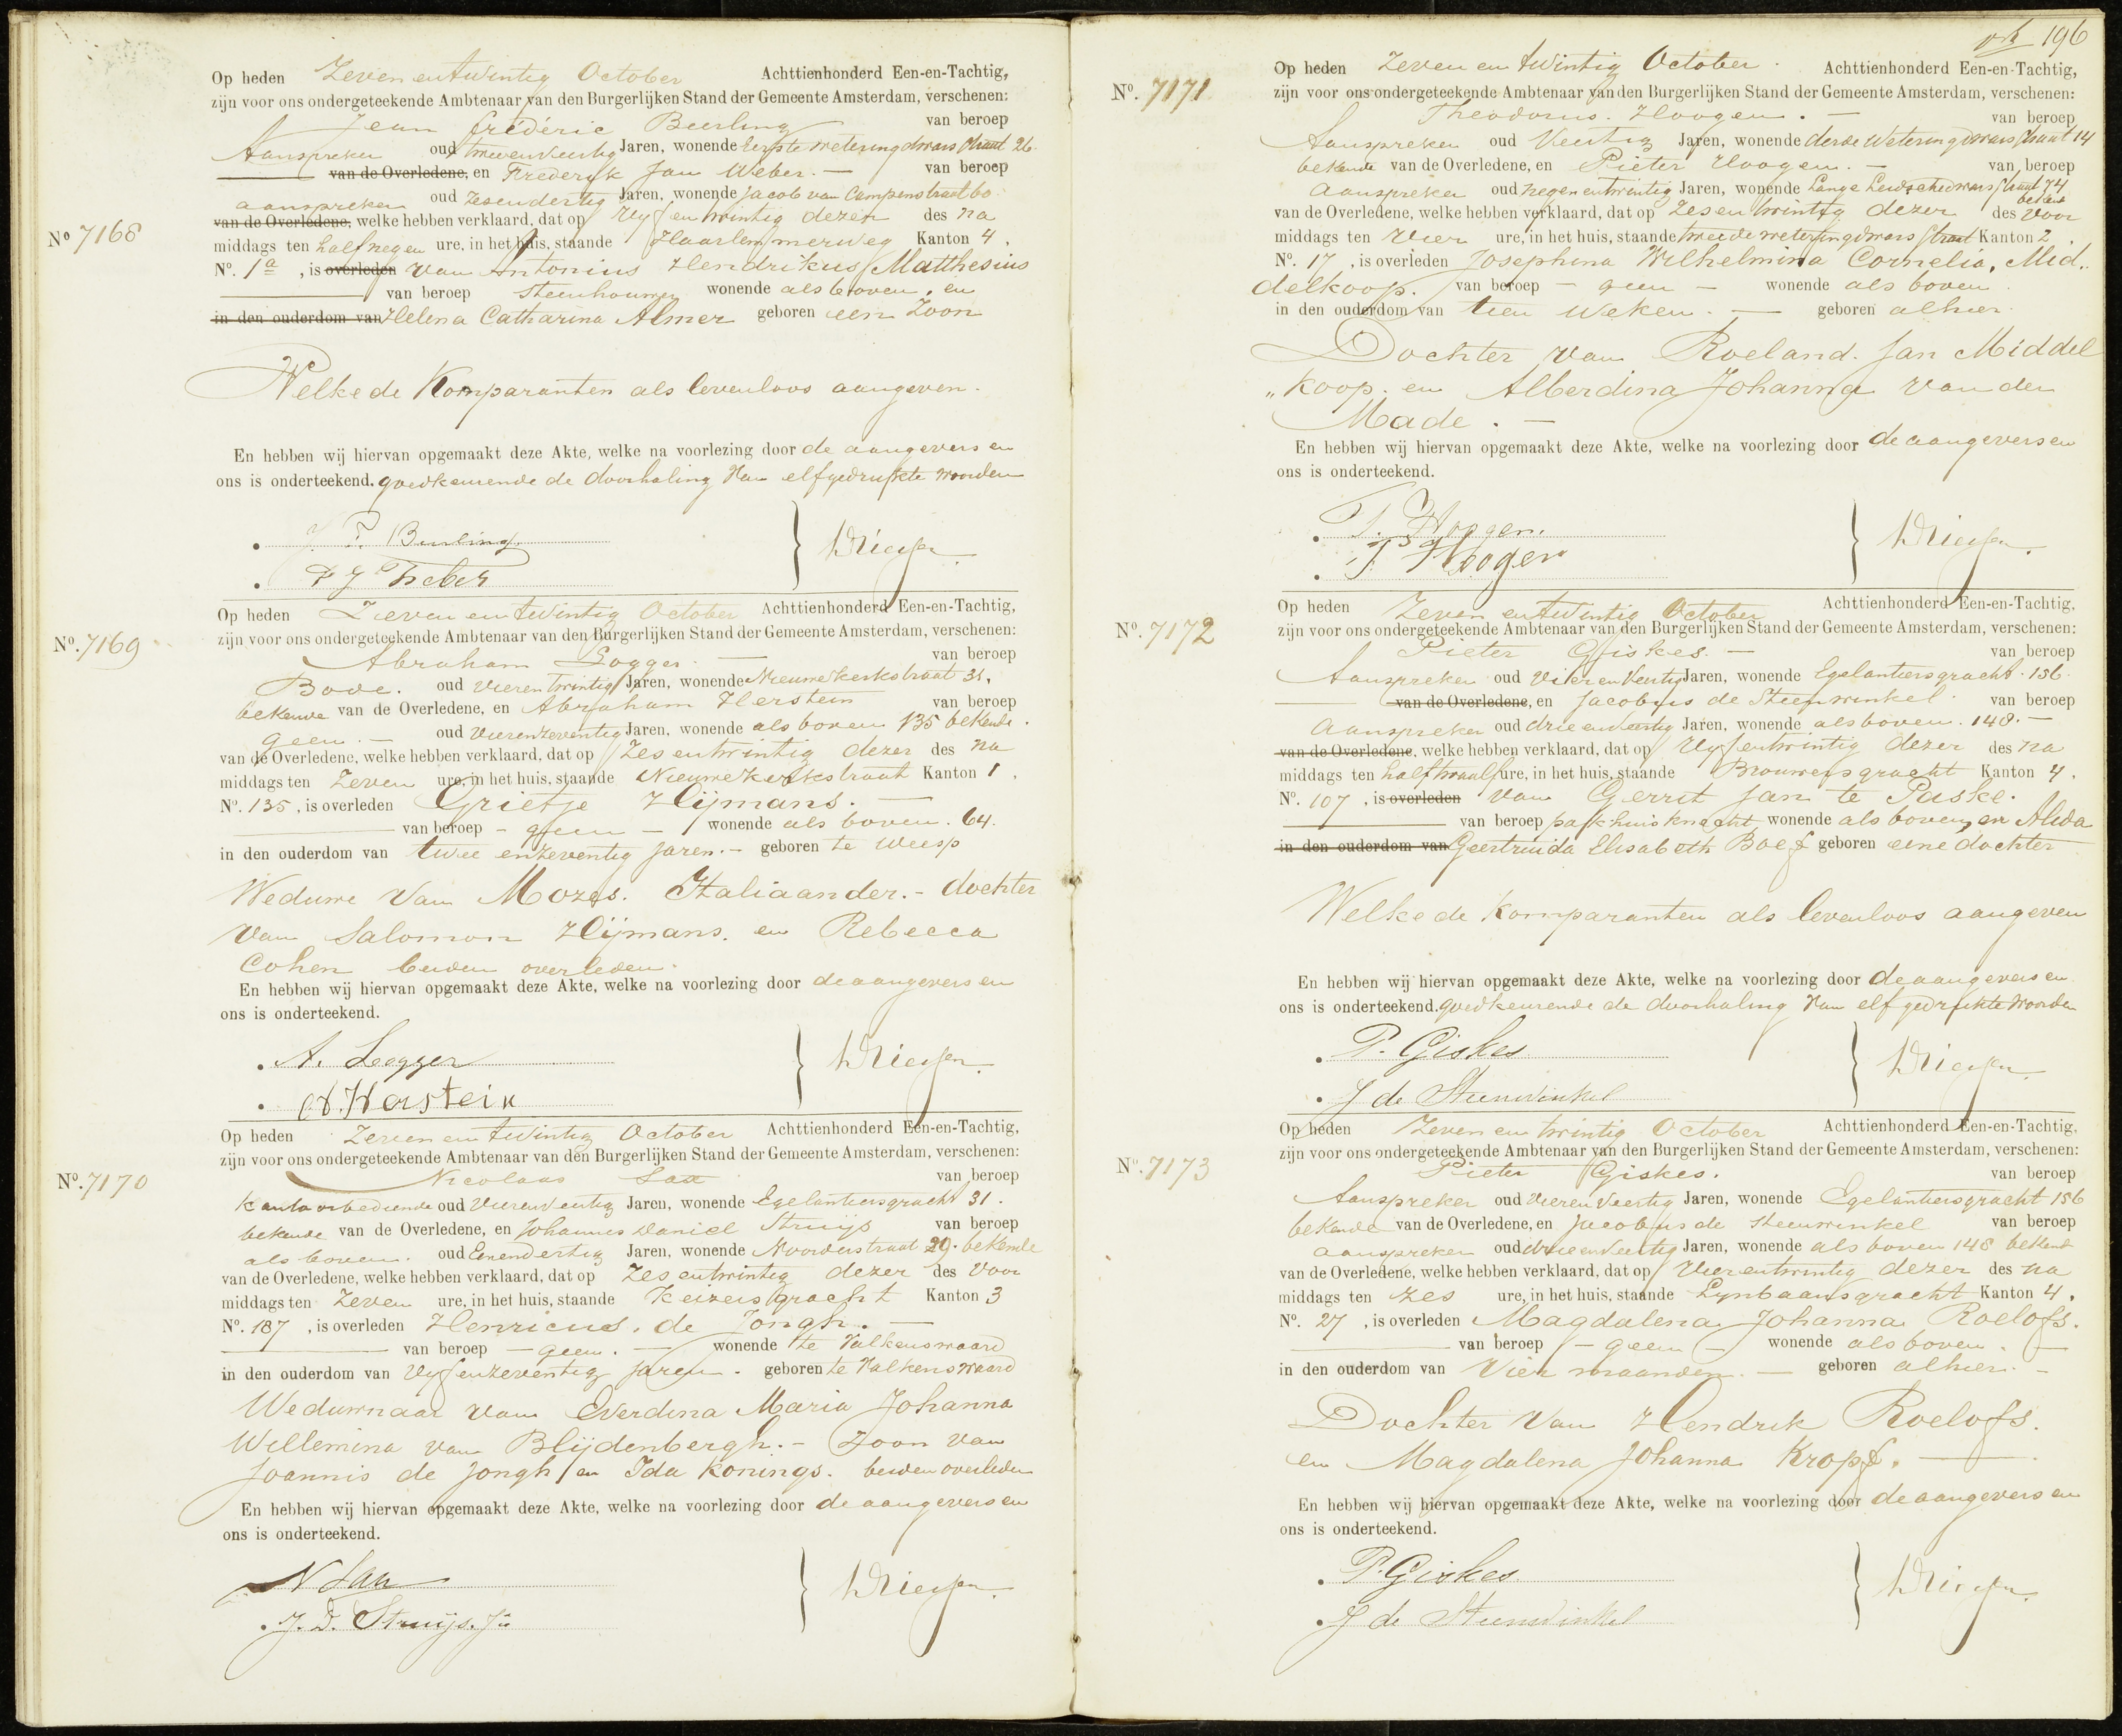 Op heden Zeven en twintig October Achttienhonderd Een-en-Tachtig,
zijn voor ons ondergeteekende Ambtenaar van den Burgerlijken Stand der Gemeente Amsterdam, verschenen:
Jean Frédéric Beerling van beroep
Aanspreker oud tweeenveertig Jaren, wonende Eerste weteringdwarsstraat 26.
van de Overledene, en Frederyk Jan Weber. — van beroep
aanspreker oud Zesendertig Jaren, wonende Jacob van Campenstraat 60
van de Overledene, welke hebben verklaard, dat op Vyfentwintig dezer des na
Nº 7168
middags ten half negen ure, in het huis, staande Haarlemmerweg Kanton 4.
Nº. 1a, is overleden van Antonius Hendrikus Matthesius
van beroep Steenhouwer wonende als boven, en
in den ouderdom van Helena Catharina Almer geboren een Zoon
Welke de Komparanten als levenloos aangeven.
En hebben wij hiervan opgemaakt deze Akte, welke na voorlezing door de aangevers en
ons is onderteekend. goedkeurende de doorhaling van elf gedrukte woorden
J. F. Beerling
F J Weber
Op heden Zeven en twintig October Achttienhonderd Een-en-Tachtig,
zijn voor ons ondergeteekende Ambtenaar van den Burgerlijken Stand der Gemeente Amsterdam, verschenen:
Nº. 7169
Abraham Logger. — van beroep
Bode. oud vierentwintig Jaren, wonende Nieuwekerkstraat 31,
bekende van de Overledene, en Abraham Herstein van beroep
geen. — oud vierenzeventig Jaren, wonende als boven 135 bekende.
van de Overledene, welke hebben verklaard, dat op Zes entwintig dezer des na
middags ten Zeven ure, in het huis, staande Nieuwekerkstraat Kanton 1.
Nº. 135, is overleden Grietje Hijmans. —
van beroep - geen - wonende als boven. 64.
in den ouderdom van twee enzeventig jaren. - geboren te Weesp
Weduwe van Mozes. Italiaander. - dochter
van Salomon Hijmans. en Rebecca
Cohen beiden overleden.
En hebben wij hiervan opgemaakt deze Akte, welke na voorlezing door de aangevers en
ons is onderteekend.
A. Logger
A. Herstein
Op heden Zeven en twintig October Achttienhonderd Een-en-Tachtig,
zijn voor ons ondergeteekende Ambtenaar van den Burgerlijken Stand der Gemeente Amsterdam, verschenen:
Nº. 7170
Nicolaas van beroep
Kantoorbediende oud Vierenveertig Jaren, wonende Egelantiersgracht 31.
bekende van de Overledene, en Johannes Daniel Struijs van beroep
als boven. oud Eenendertig Jaren, wonende Noorderstraat 29. bekende
van de Overledene, welke hebben verklaard, dat op Zes entwintig dezer des voor
middags ten Zeven ure, in het huis, staande Keizersgracht Kanton 3
Nº. 187, is overleden Henricus. de Jongh. —
van beroep - geen. - wonende te Valkenswaard
in den ouderdom van Vyfenzeventig jaren. geboren te Valkenswaard
Weduwnaar van Everdina Maria Johanna
Willemina van Blijdenbergh. - Zoon van
Joannis de Jongh en Ida Konings. beiden overleden
En hebben wij hiervan opgemaakt deze Akte, welke na voorlezing door de aangevers en
ons is onderteekend.
J. D. Struijs. Jr
196
Nº. 7171
Op heden Zeven en twintig October. Achttienhonderd Een-en-Tachtig,
zijn voor ons ondergeteekende Ambtenaar van den Burgerlijken Stand der Gemeente Amsterdam, verschenen:
Theodorus. Hoogen. — van beroep
Aanspreker oud Veertig Jaren, wonende derde Weteringdwarsstraat 14
bekende van de Overledene, en Pieter Hoogen. — van beroep
aanspreker oud negen entwintig Jaren, wonende Lange Leidschedwarsstraat 74 bekend
van de Overledene, welke hebben verklaard, dat op Zesentwintig dezer des voor
middags ten Vier ure, in het huis, staande tweede weteringdwarsstraat Kanton 2.
Nº. 17, is overleden Josephina Wilhelmina Cornelia, Mid„
delkoop. van beroep - geen - wonende als boven.
in den ouderdom van tien weken. — geboren alhier.
Dochter van Roeland. Jan Middel
„koop. en Alberdina Johanna van der
Made. —
En hebben wij hiervan opgemaakt deze Akte, welke na voorlezing door de aangevers en
ons is onderteekend.
T. Hoogen.
P Hoogen
Op heden Zeven en twintig October Achttienhonderd Een-en-Tachtig,
Nº. 7172
zijn voor ons ondergeteekende Ambtenaar van den Burgerlijken Stand der Gemeente Amsterdam, verschenen:
Pieter Giskes. — van beroep
Aanspreker oud Vierenveertig Jaren, wonende Egelantiersgracht. 156.
van de Overledene, en Jacobus de Steenwinkel van beroep
aanspreker oud drieenveertig Jaren, wonende als boven. 148. —
van de Overledene, welke hebben verklaard, dat op Vyfentwintig dezer des na
middags ten half twaalf ure, in het huis, staande Brouwersgracht Kanton 4.
Nº. 107, is overleden van Gerrit Jan te Paske.
van beroep pakhuisknecht wonende als boven, en Alida
in den ouderdom van Geertruida Elisabeth Boef geboren eene dochter
Welke de Komparanten als levenloos aangeven
En hebben wij hiervan opgemaakt deze Akte, welke na voorlezing door de aangevers en
ons is onderteekend. goedkeurende de doorhaling van elf gedrukte woorden
P. Giskes
J de Steenwinkel
Op heden Zeven en twintig October Achttienhonderd Een-en-Tachtig,
zijn voor ons ondergeteekende Ambtenaar van den Burgerlijken Stand der Gemeente Amsterdam, verschenen:
Nº. 7173
Pieter Giskes. van beroep
Aanspreker oud Vierenveertig Jaren, wonende Egelantiersgracht 156
bekende van de Overledene, en Jacobus de Steenwinkel van beroep
aanspreker oud drieenveertig Jaren, wonende als boven 148 bekend
van de Overledene, welke hebben verklaard, dat op Vierentwintig dezer des na
middags ten zes ure, in het huis, staande Lynbaansgracht Kanton 4.
Nº. 27, is overleden Magdalena Johanna Roelofs.
van beroep - geen - wonende als boven. —
in den ouderdom van Vier maanden. — geboren alhier. -
Dochter van Hendrik Roelofs.
en Magdalena Johanna Kropf. —
En hebben wij hiervan opgemaakt deze Akte, welke na voorlezing door de aangevers en
ons is onderteekend.
P. Giskes
J de Steenwinkel